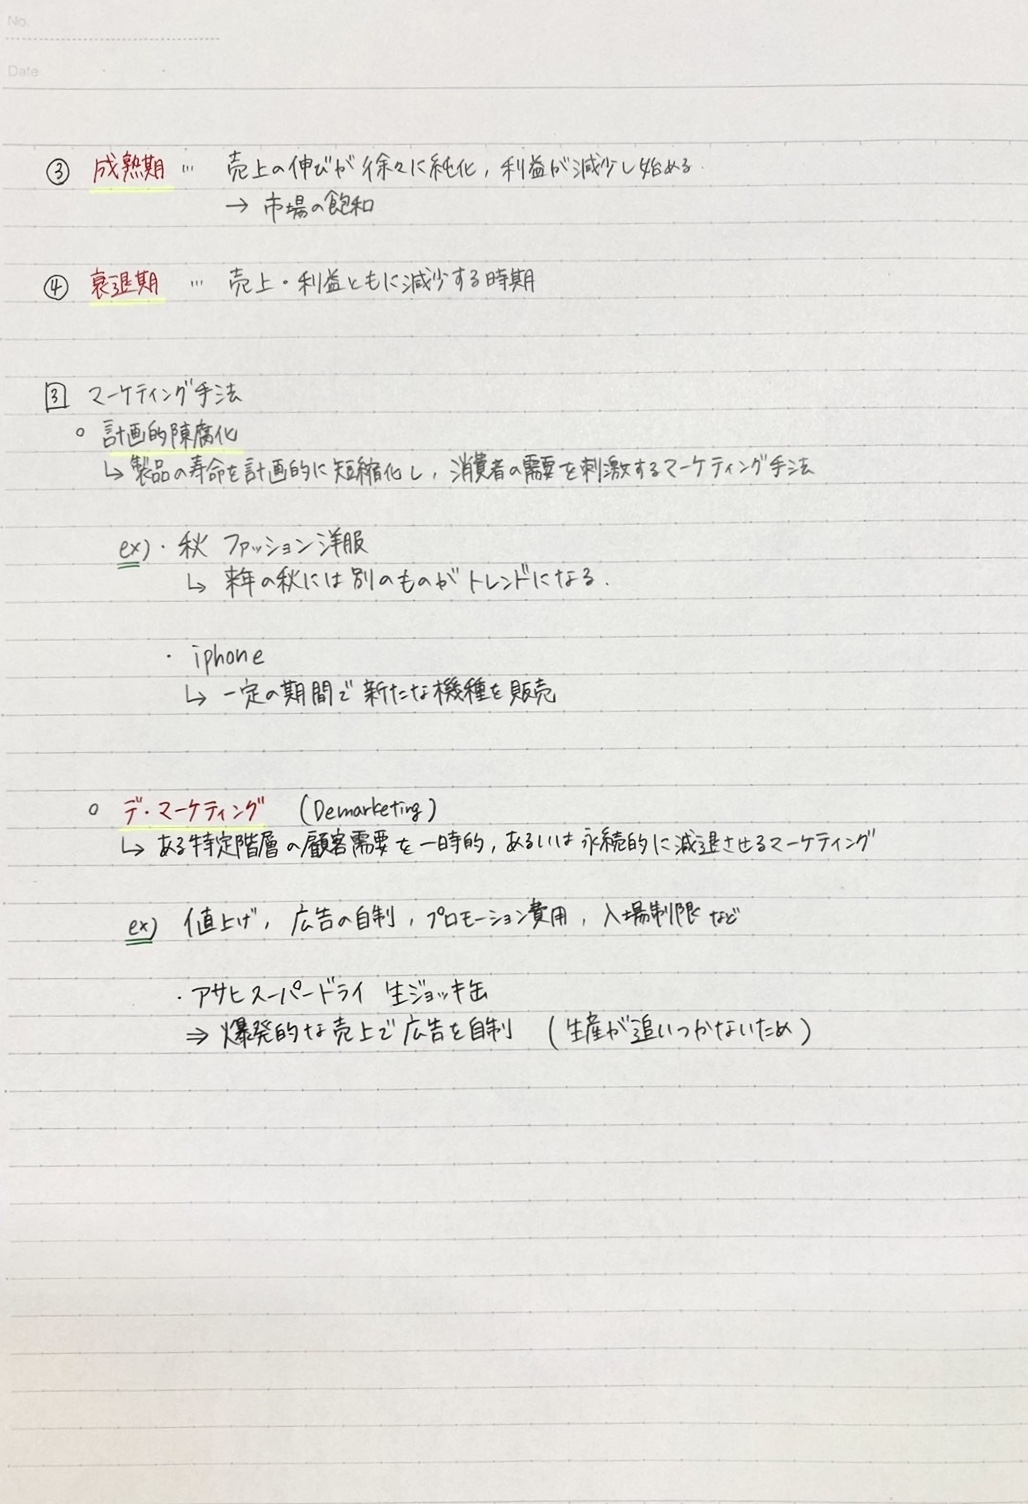 No.
Date
③ 成熟期 … 売上の伸びが徐々に純化, 利益が減少し始める.
→ 市場の飽和
④ 衰退期 … 売上・利益ともに減少する時期
3 マーケティング手法
○ 計画的陳腐化
↳ 製品の寿命を計画的に短縮化し, 消費者の需要を刺激するマーケティング手法
ex)・秋 ファッション洋服
↳ 来年の秋には別のものがトレンドになる.
・iphone
↳ 一定の期間で新たな機種を販売
○ デ・マーケティング (Demarketing)
↳ ある特定階層の顧客需要を一時的, あるいは永続的に減退させるマーケティング
ex) 値上げ, 広告の自制, プロモーション費用, 入場制限など
・アサヒスーパードライ 生ジョッキ缶
⇒ 爆発的な売上で広告を自制 (生産が追いつかないため)